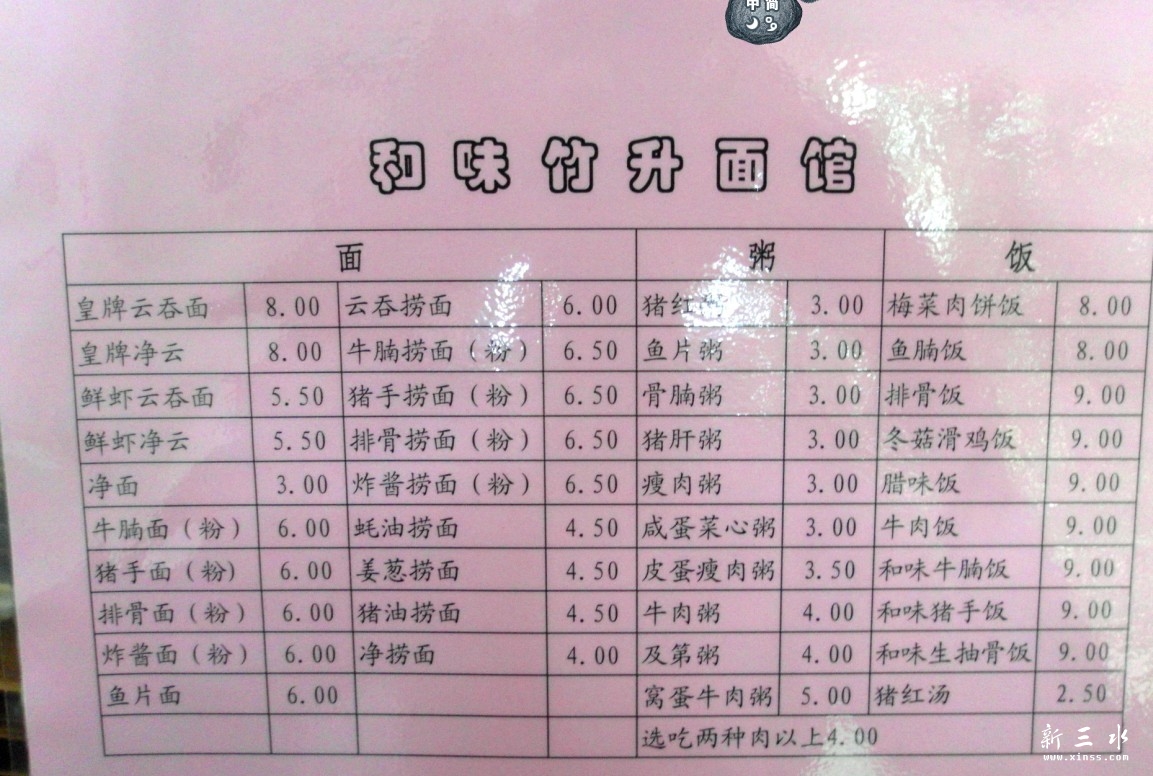 中 简
和味竹升面馆
面 粥 饭
皇牌云吞面 8.00 云吞捞面 6.00 猪红粥 3.00 梅菜肉饼饭 8.00
皇牌净云 8.00 牛腩捞面（粉） 6.50 鱼片粥 3.00 鱼腩饭 8.00
鲜虾云吞面 5.50 猪手捞面（粉） 6.50 骨腩粥 3.00 排骨饭 9.00
鲜虾净云 5.50 排骨捞面（粉） 6.50 猪肝粥 3.00 冬菇滑鸡饭 9.00
净面 3.00 炸酱捞面（粉） 6.50 瘦肉粥 3.00 腊味饭 9.00
牛腩面（粉） 6.00 蚝油捞面 4.50 咸蛋菜心粥 3.00 牛肉饭 9.00
猪手面（粉） 6.00 姜葱捞面 4.50 皮蛋瘦肉粥 3.50 和味牛腩饭 9.00
排骨面（粉） 6.00 猪油捞面 4.50 牛肉粥 4.00 和味猪手饭 9.00
炸酱面（粉） 6.00 净捞面 4.00 及第粥 4.00 和味生抽骨饭 9.00
鱼片面 6.00 窝蛋牛肉粥 5.00 猪红汤 2.50
选吃两种肉以上4.00
新三水
www.xinss.com